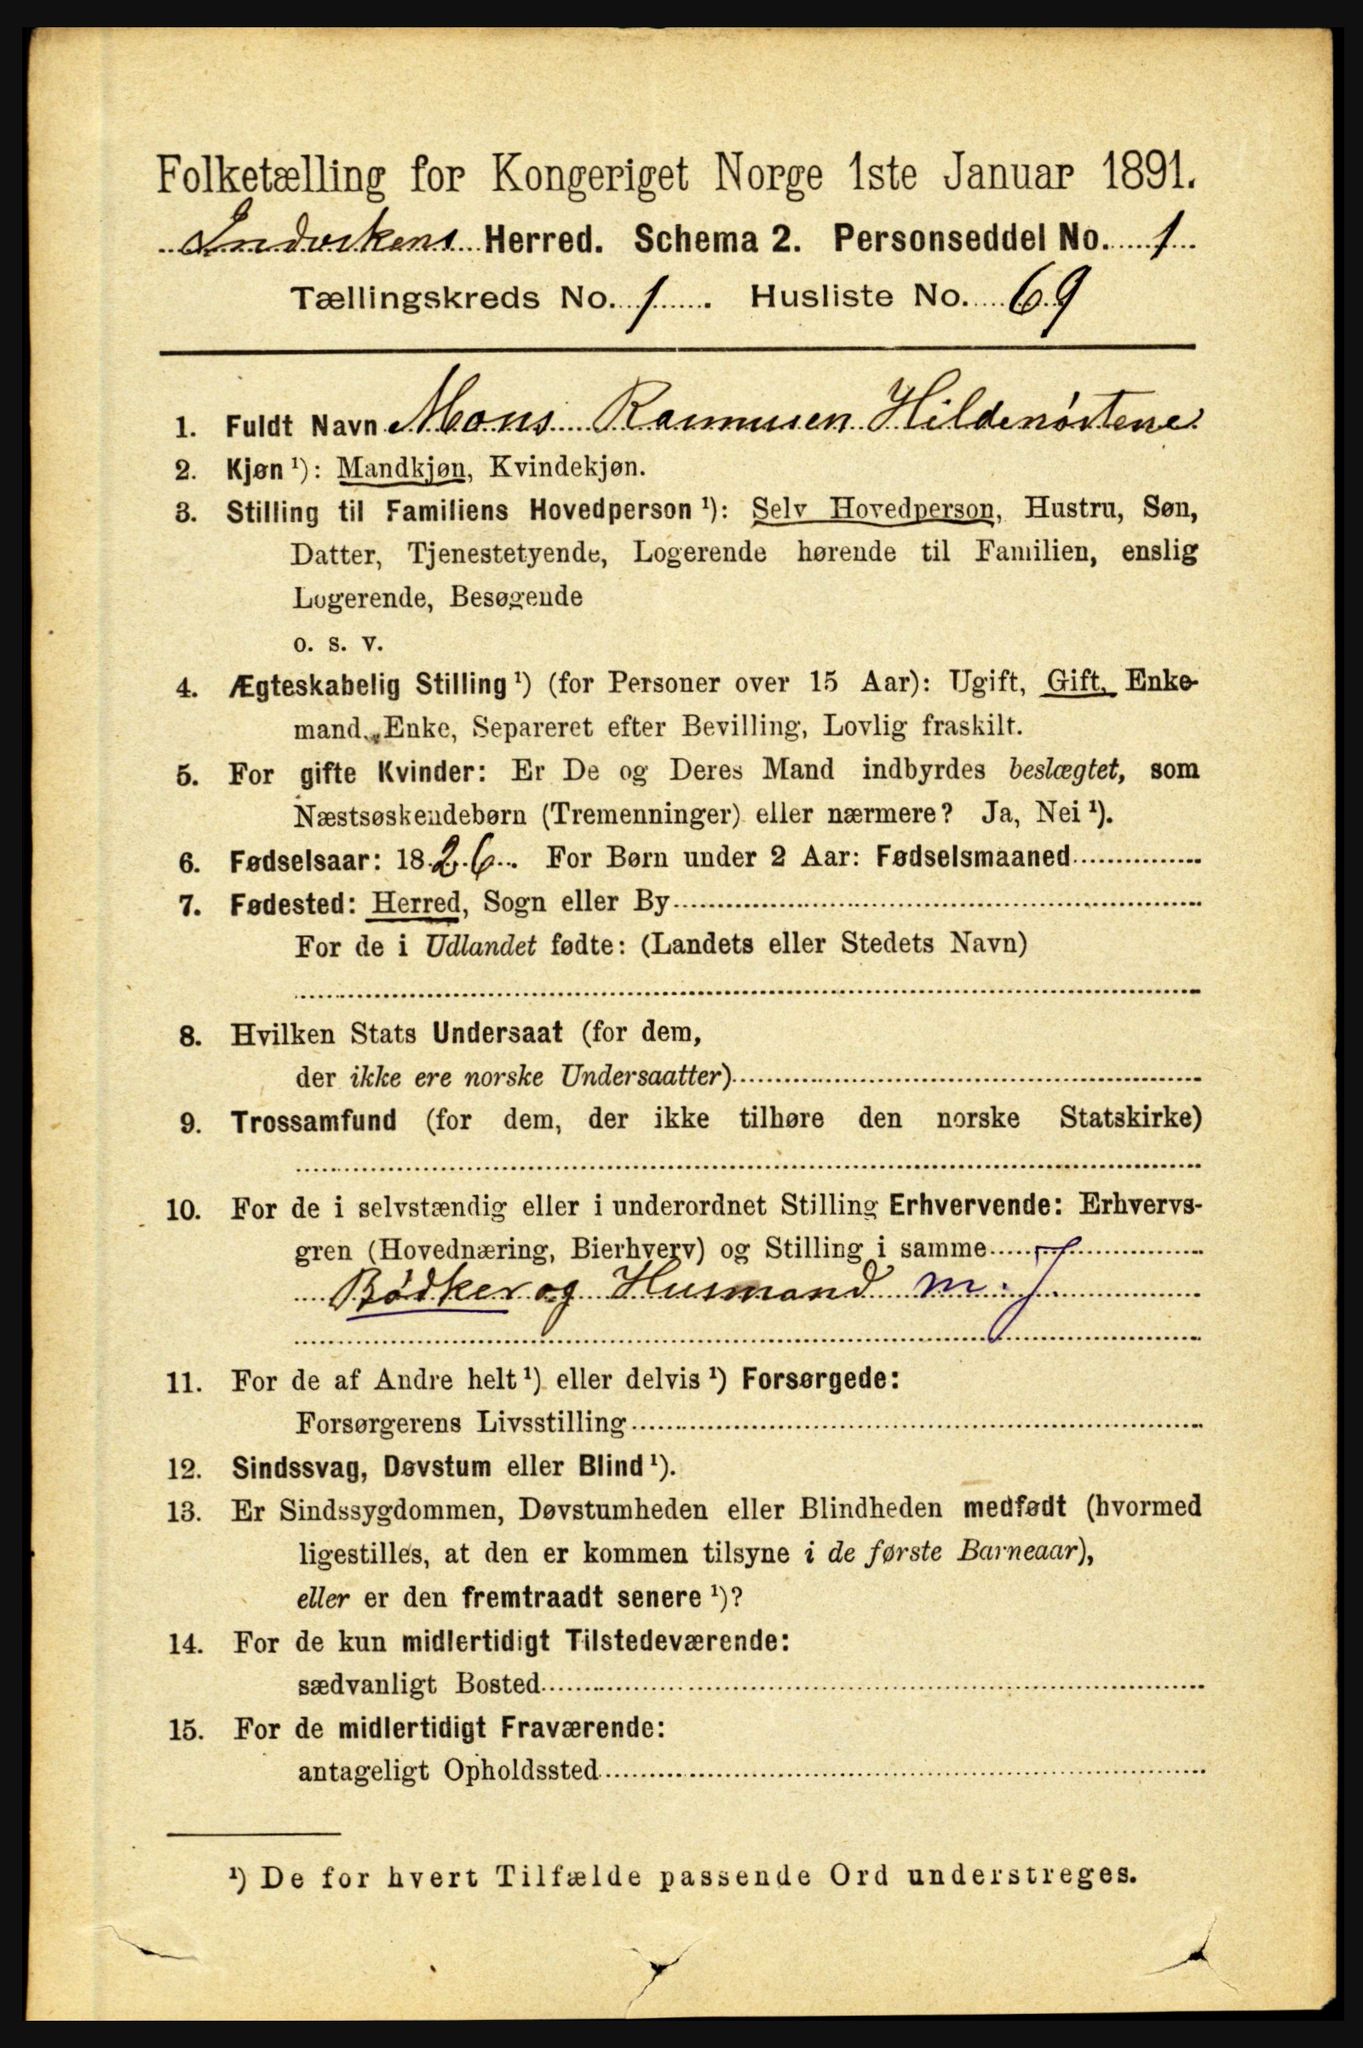 Folketælling for Kongeriget Norge 1ste Januar 1891.
Indvikens Herred. Schema 2. Personseddel No. 1
Tællingskreds No. 1. Husliste No. 69
1. Fuldt Navn Mons Rasmusen Hildenøstene
2. Kjøn ¹): Mandkjøn, Kvindekjøn.
3. Stilling til Familiens Hovedperson ¹): Selv Hovedperson, Hustru, Søn,
Datter, Tjenestetyende, Logerende hørende til Familien, enslig
Logerende, Besøgende
o. s. v.
4. Ægteskabelig Stilling ¹) (for Personer over 15 Aar): Ugift, Gift, Enke-
mand, Enke, Separeret efter Bevilling, Lovlig fraskilt.
5. For gifte Kvinder: Er De og Deres Mand indbyrdes beslægtet, som
Næstsøskendebørn (Tremenninger) eller nærmere? Ja, Nei ¹).
6. Fødselsaar: 1826. For Børn under 2 Aar: Fødselsmaaned
7. Fødested: Herred, Sogn eller By
For de i Udlandet fødte: (Landets eller Stedets Navn)
8. Hvilken Stats Undersaat (for dem,
der ikke ere norske Undersaatter)
9. Trossamfund (for dem, der ikke tilhøre den norske Statskirke)
10. For de i selvstændig eller i underordnet Stilling Erhvervende: Erhvervs-
gren (Hovednæring, Bierhverv) og Stilling i samme
Bødker og Husmand m. J.
11. For de af Andre helt ¹) eller delvis ¹) Forsørgede:
Forsørgerens Livsstilling
12. Sindssvag, Døvstum eller Blind ¹).
13. Er Sindssygdommen, Døvstumheden eller Blindheden medfødt (hvormed
ligestilles, at den er kommen tilsyne i de første Barneaar),
eller er den fremtraadt senere ¹)?
14. For de kun midlertidigt Tilstedeværende:
sædvanligt Bosted
15. For de midlertidigt Fraværende:
antageligt Opholdssted
¹) De for hvert Tilfælde passende Ord understreges.